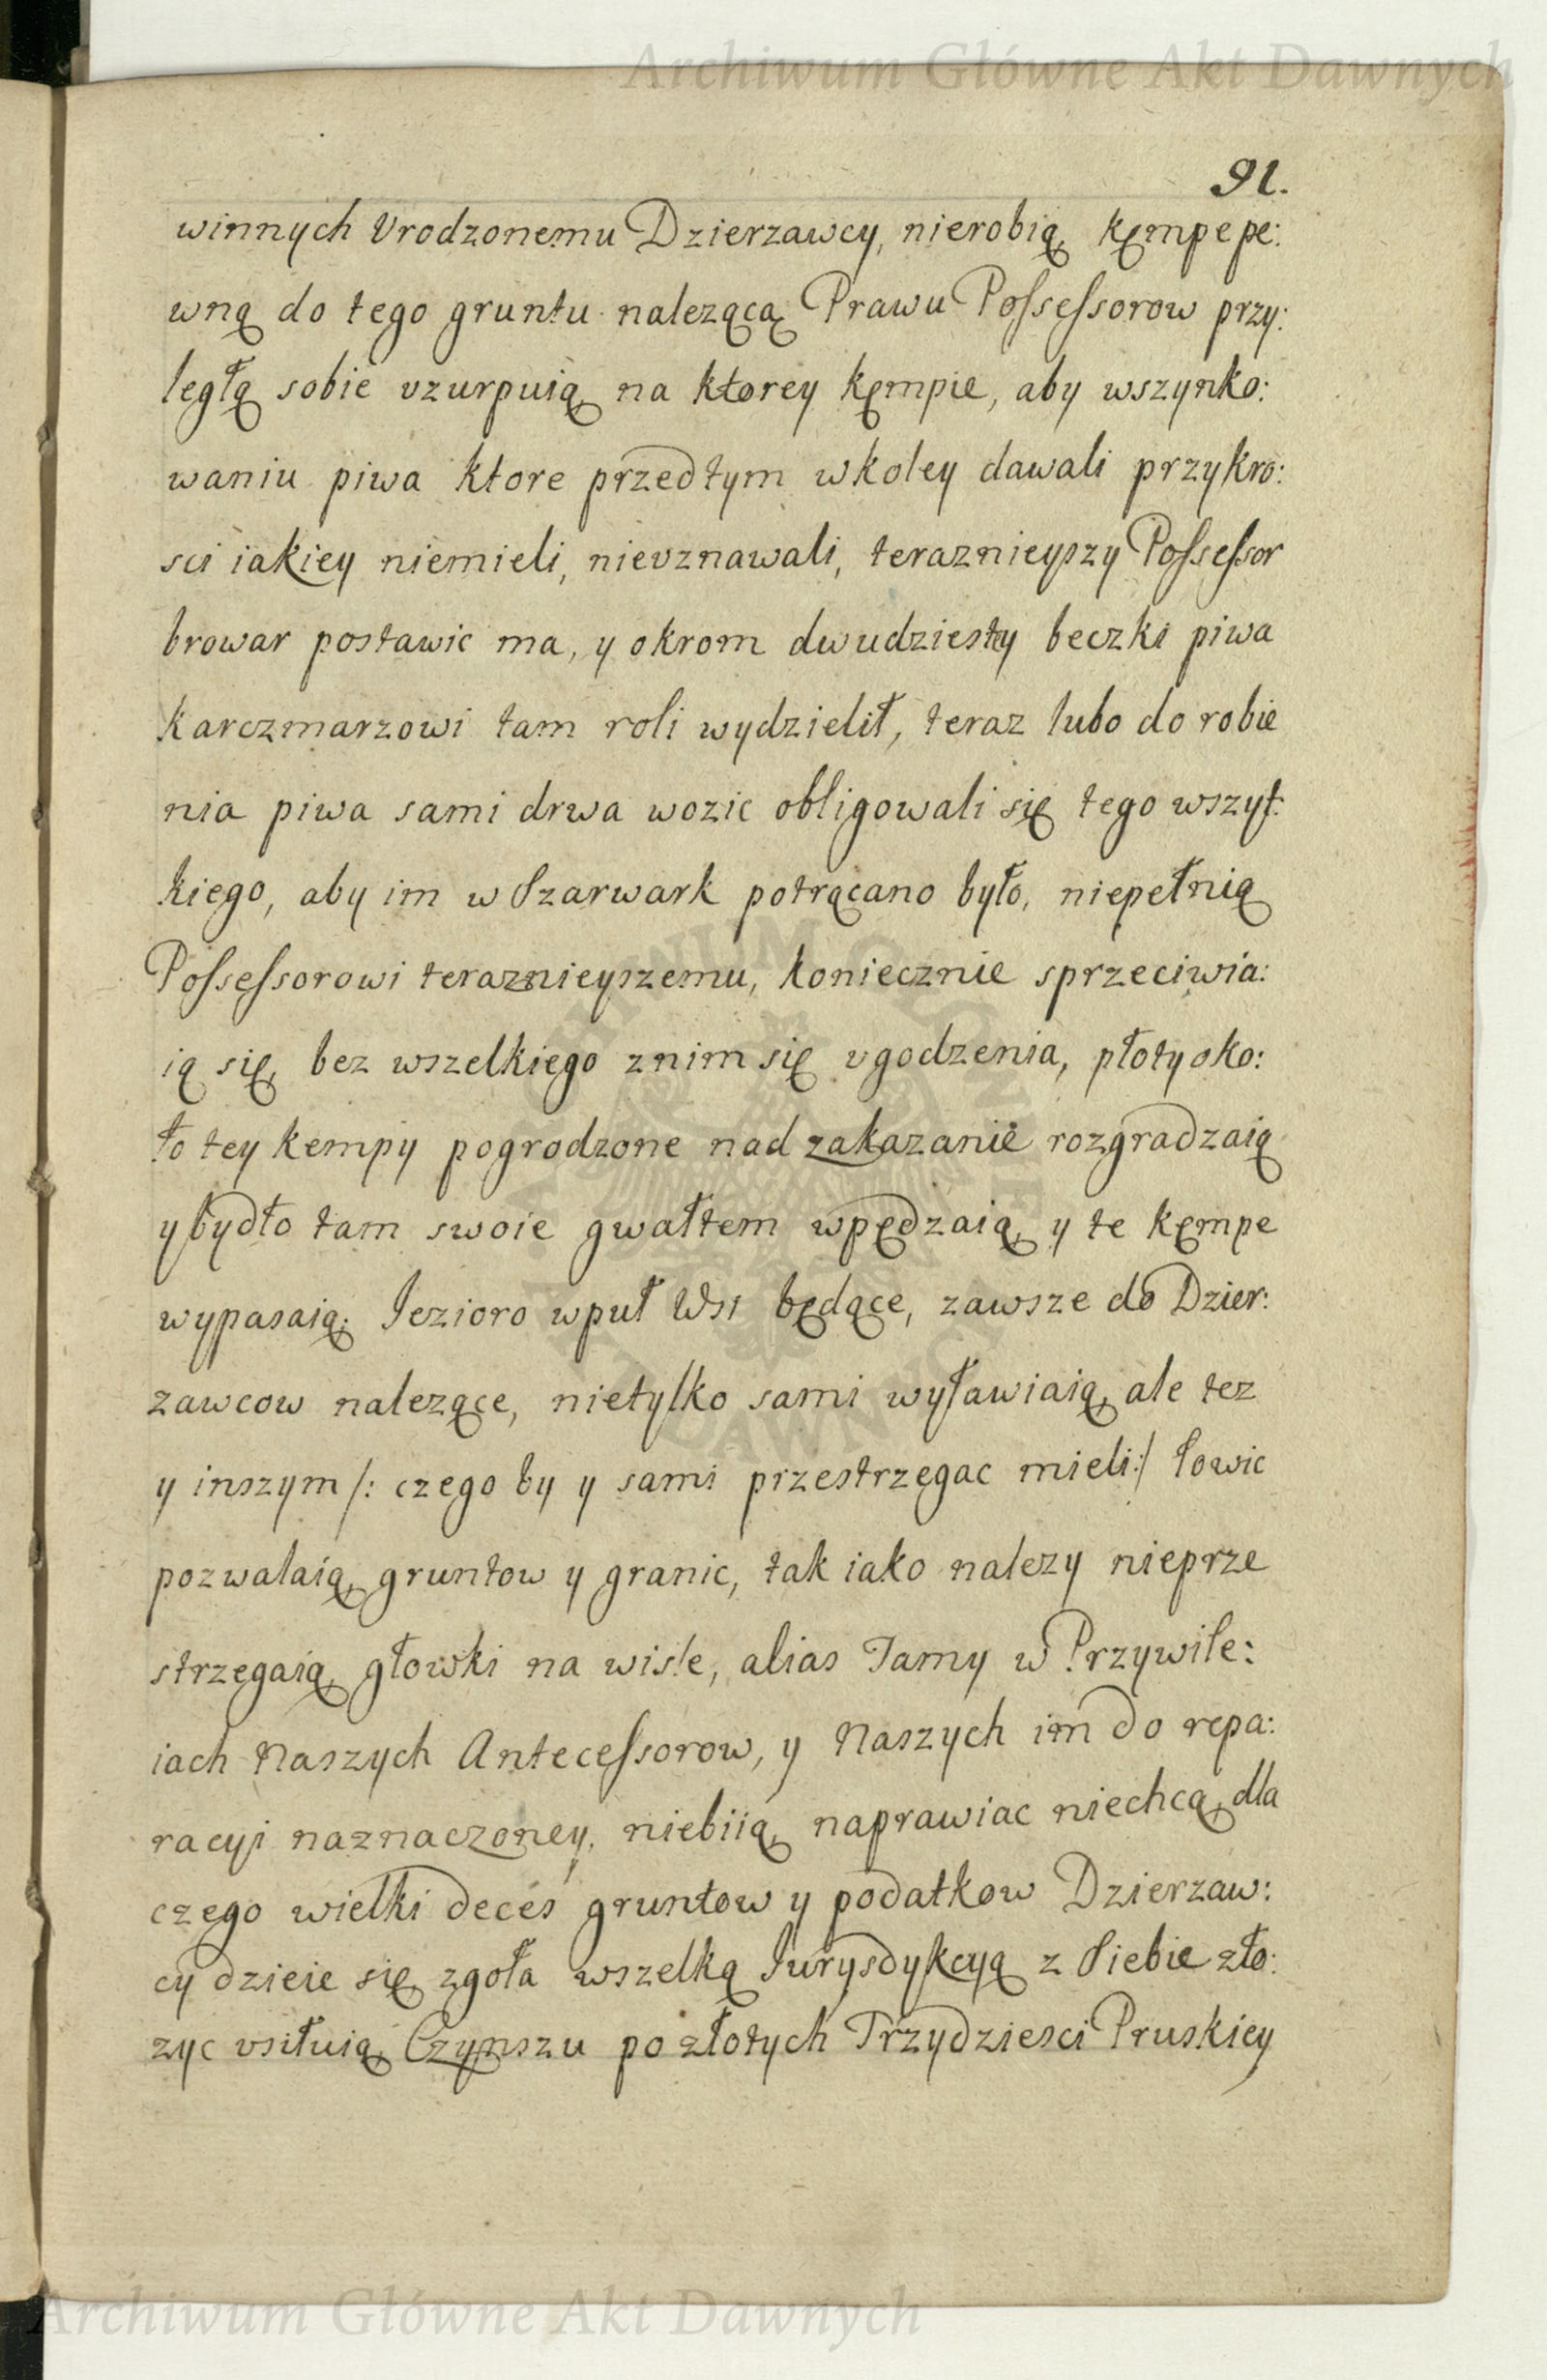 Archiwum Główne Akt Dawnych
91.
winnych Urodzonemu Dzierzawcy, nierobią, kęmpe pe:
wną do tego gruntu nalezącą Prawu Possessorow przy:
ległą sobie vzurpuią, na ktorey kęmpie, aby wszynko:
waniu piwa ktore przedtym wkoley dawali przykro:
sci iakiey niemieli, nievznawali, teraznieyszy Possessor
browar postawic ma, y okrom dwudziesty beczki piwa
karczmarzowi tam roli wydzielił, teraz lubo do robie
nia piwa sami drwa wozic obligowali się tego wszyt:
kiego, aby im w Szarwark potrącano było, niepełnią
Possessorowi teraznieyszemu, koniecznie sprzeciwia:
ią się, bez wszelkiego znim się vgodzenia, płoty oko:
ło tey kempy pogrodzone nad zakazanie rozgradzaią
y bydło tam swoie gwałtem wpędzaią, y te kęmpe
wypasaią. Iezioro wpuł Wsi będące, zawsze do Dzier:
zawcow nalezące, nietylko sami wyławiaią, ale tez
y inszym /: czego by y sami przestrzegac mieli :/ łowic
pozwalaią, gruntow y granic, tak iako nalezy nieprze
strzegaią, głowki na wisle, alias Tamy w Przywile:
iach Naszych Antecessorow, y Naszych im do repa:
racyi naznaczoney, niebiią, naprawiac niechcą, dla
czego wielki deces gruntow y podatkow Dzierzaw:
cy dzieie się zgoła wszelką Iurysdykcyą z Siebie zło:
zyc vsiłuią, Czynszu po złotych Trzydziesci Pruskiey
Archiwum Główne Akt Dawnych